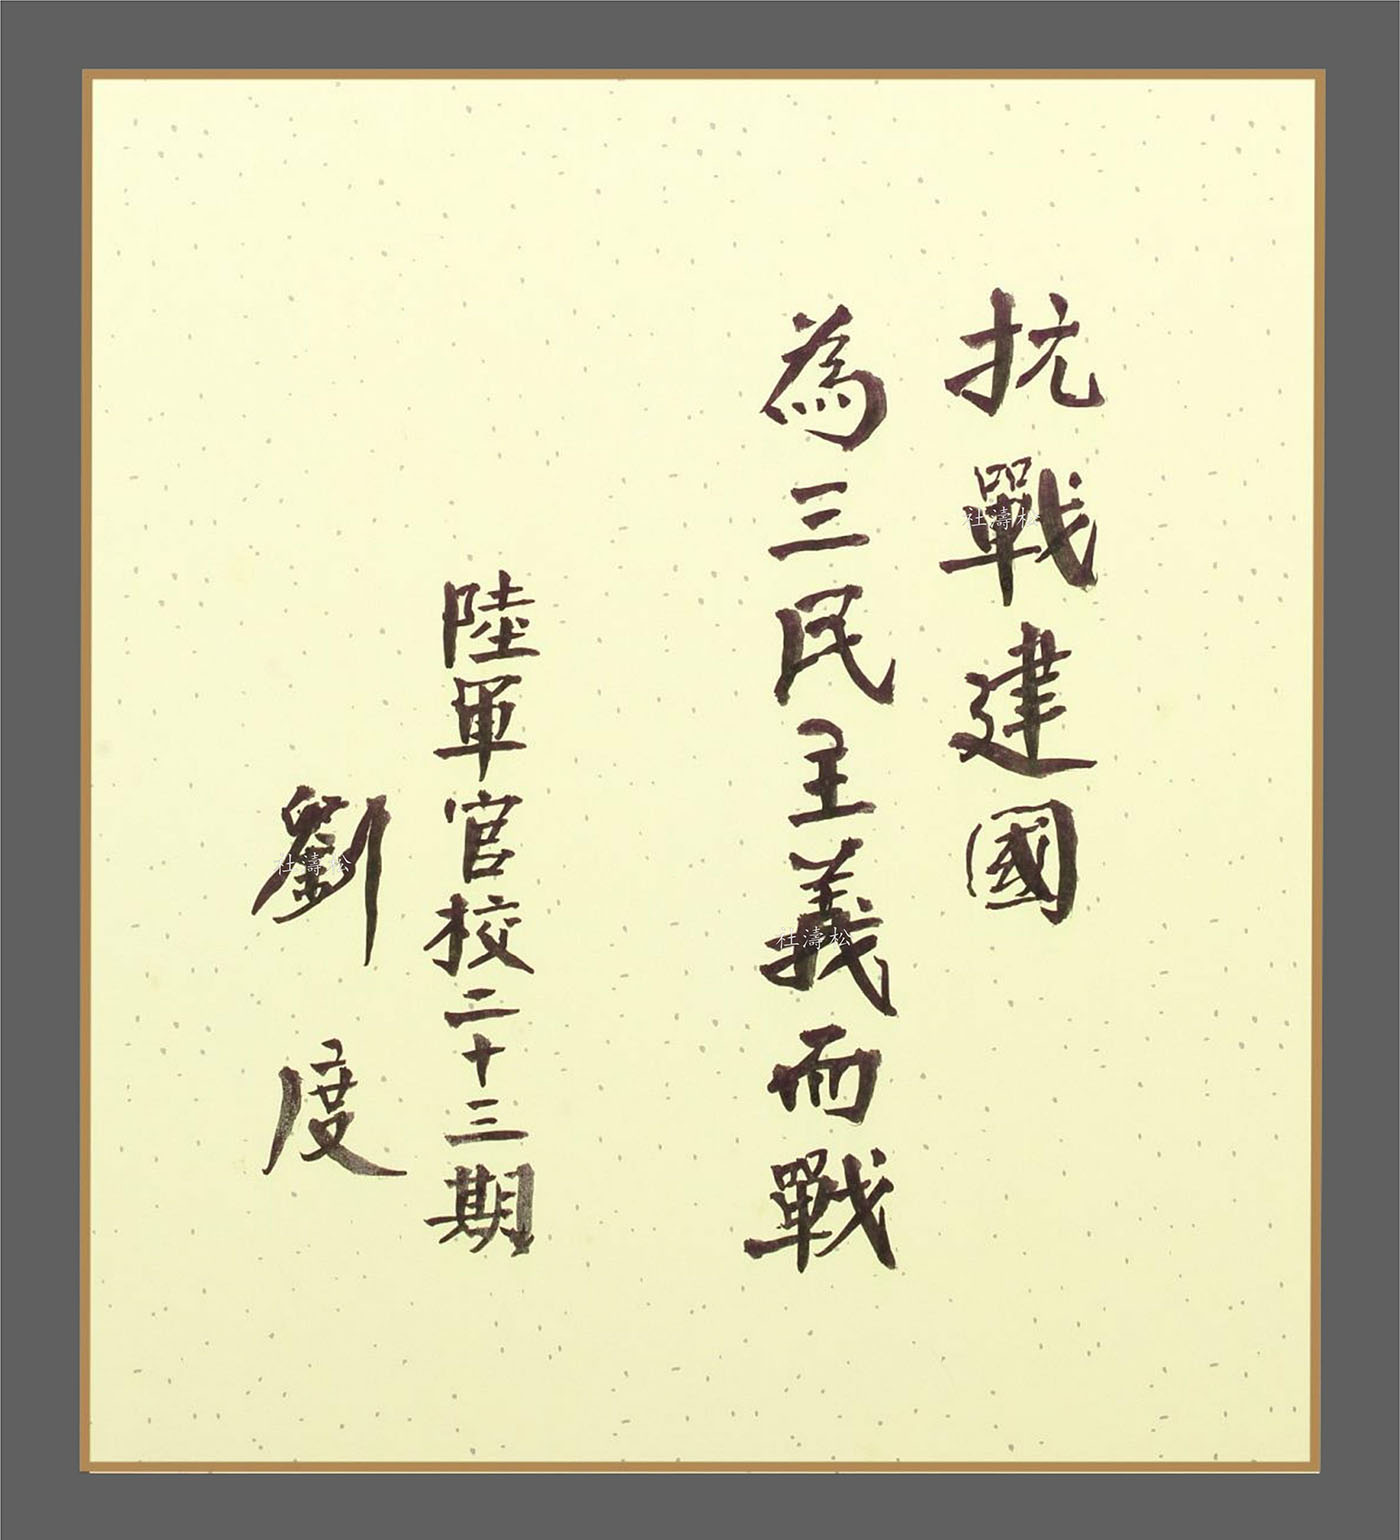 抗戰建國
為三民主義而戰
陸軍官校二十三期
劉度
杜濤松
杜濤松
杜濤松